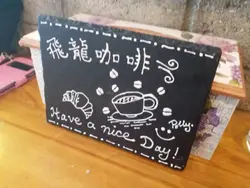 飛龍咖啡
Polly
Have a nice Day!